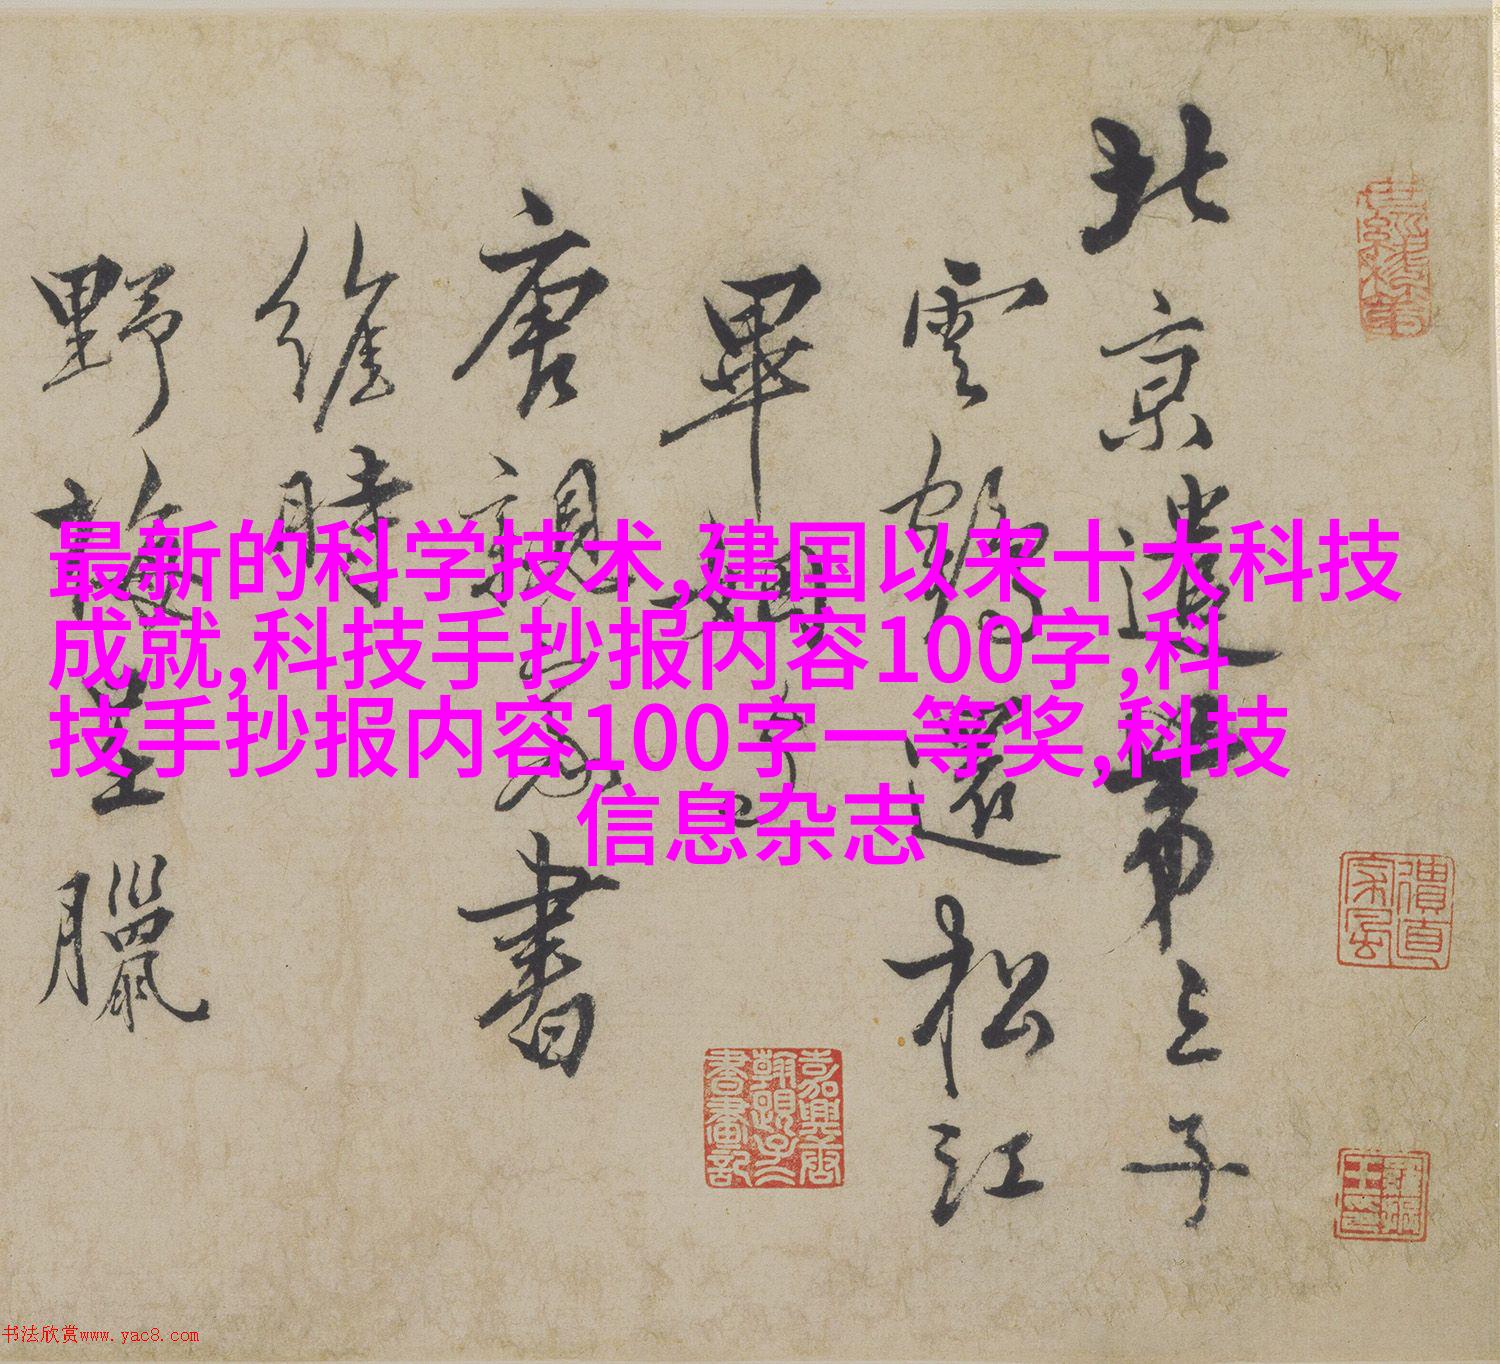 最新的科学技术,建国以来十大科技
成就,科技手抄报内容100字,科
技手抄报内容100字一等奖,科技
信息杂志
北京遣第三子
雲鶴還松江
畢姻事
唐親書
維時
野梅呈臘
书法欣赏www.yac8.com